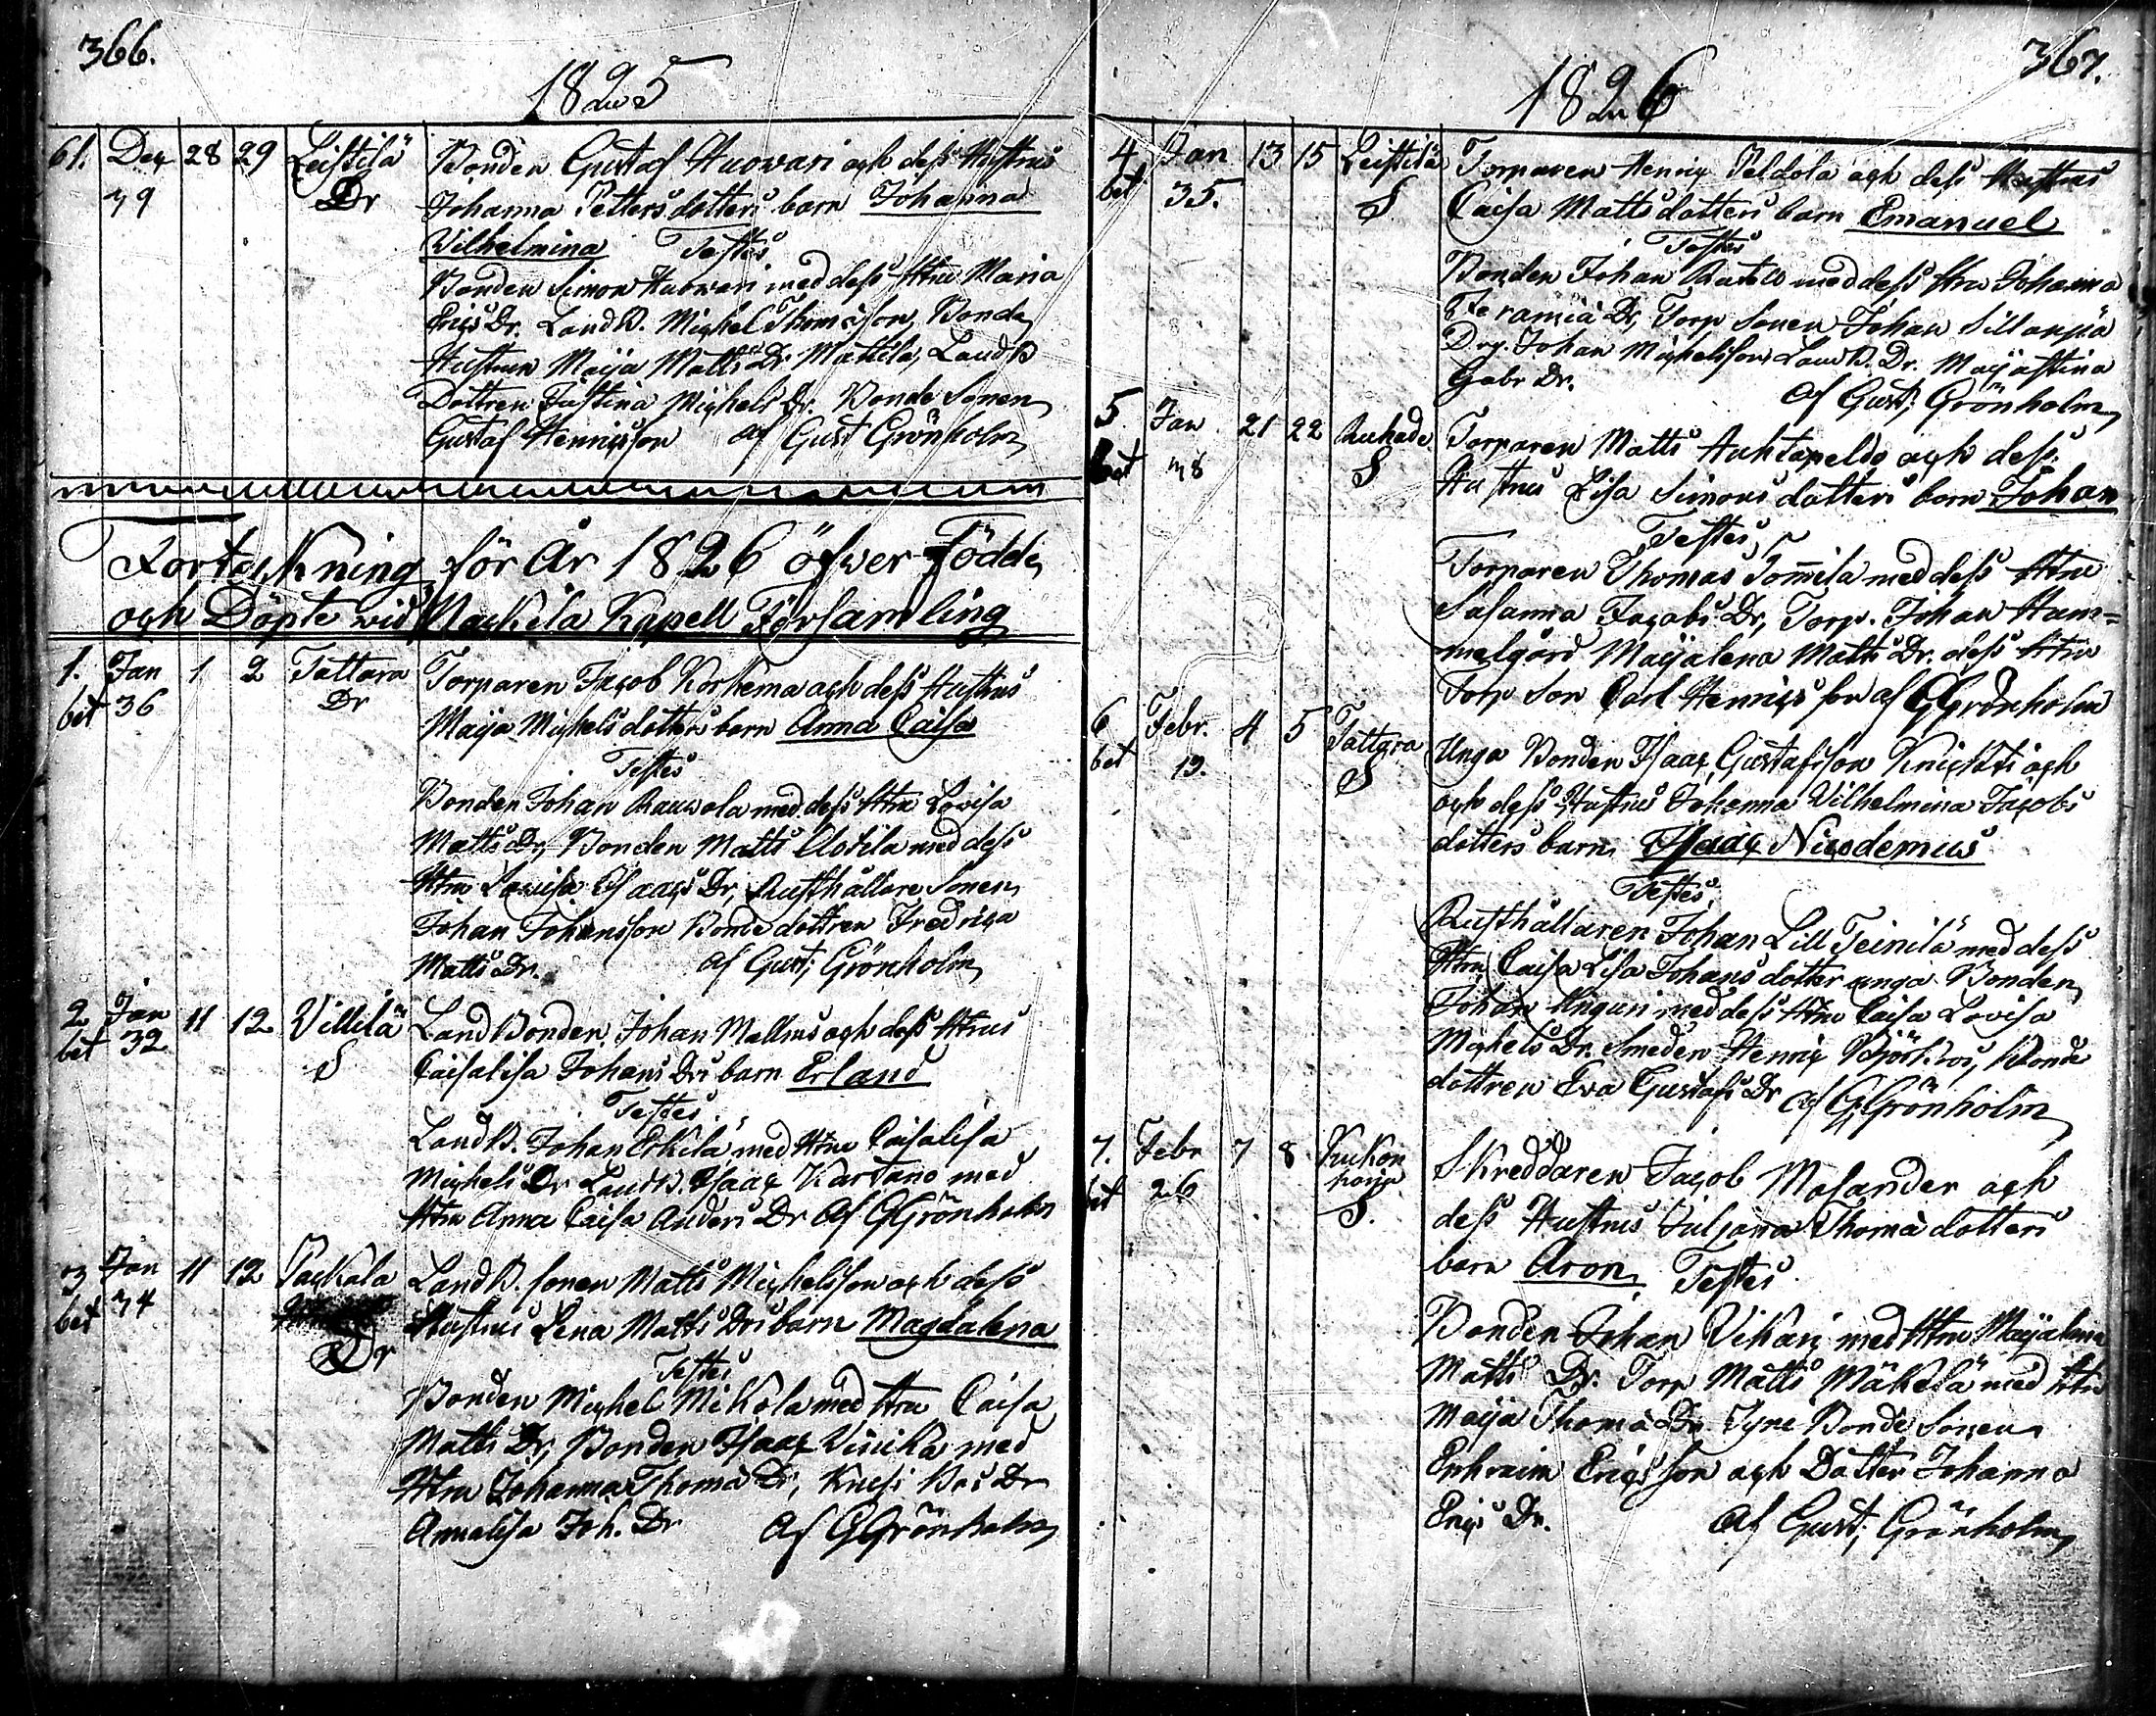 366.
1825
61. Dec 28 29 Leistilä Bonden Gustaf Huowari och dess Hustrus
39 Dr Johanna Petters dotters barn Johanna
Vilhelmina Testes
Bonden Simon Huowari med dess Hru Maria
Erics Dr. LandB. Michel Thomasson, Bonde
Hustrun Maija Matts Dr Mattila, LandB
Dottren Justina Michels Dr. Bonde Sonen
Gustaf Henricsson af Gust Grönholm
Förteckning för År 1826 öfwer Födde
och Döpte wid Nackila Kapell Församling
1. Jan 1 2 Tattara Torparen Jacob Korkema och dess Hustrus
bet 36 Dr Maija Michels dotters barn Anna Caisa
Testes
Bonden Johan Rauwola med dess Hru Lovisa
Matts Dr, Bonden Matts med dess
Hru Lovisa Isaacs Dr, Rusthållare Sonen
Johan Johansson Bonde dottren Fredrica
Matts Dr. af Gust; Grönholm
2 Jan 11 12 Villilä LandBonden Johan Mallus och dess Hrus
bet 32 S Caisalisa Johans Drs barn Erland
Testes
LandB. Johan Erkilä med Hru Caisalisa
Michels Dr LandB. Isaac Kartano med
Hru Anna Caisa Anders Dr Af GGrönholm
3 Jan 11 12 Packala LandB. sonen Matts Michelsson och dess
bet 34 Hustrus Lena Matts Drs barn Magdalena
Dr
Testes
Bonden Michel Mikola med Hru Caisa
Matts Dr, Bonden Isaac Vinika med
Hru Johanna Thoma Dr, Knusi Bds Dr
Annalisa Joh. Dr Af GGrönholm
367.
1826
4 Jan 13 15 Leistilä Torparen Henric Peldola och dess Hustrus
bet 35. S Caisa Matts dotters barn Emanuel
Testes
Bonden Johan med dess Hru Johanna
Jeramia Dr, Torp Sonen Johan Sillanpä
Drg. Johan Michelsson, LandB. Dr. Maijastina
Gabr Dr. af Gust; Grönholm
5. Jan 21 22 Torparen Matts Auhtapeldo och dess
bet 38 S Hustrus Lisa Simons dotters barn Johan
Testes
Torparen Thomas Tom̄ila med dess Hru
Susanna Jacobs Dr, Torp. Johan Ham=
melgård Maijalena Matts Dr. dess Hru
Torp Son Carl Henricsson af GGrönholm
6 Febr. 4 5 Tattara Unga Bonden Isaac Gustafsson Knickti och
bet 19. S och dess Hustrus Johanna Vilhelmina Jacobs
dotters barn Isaac Nicodemus
Testes
Rusthållaren Johan Lill Teinilä med dess
Hru Caisa Lisa Johans dotter unga Bonden
Johan Unguri med dess Hru Caisa Lovisa
Michels Dr. Smeden Henric Björkros, Bonde
dottren Eva Gustafs Dr af GGrönholm
7. Febr 7 8 Kuckon Skreddaren Jacob Molander och
harja
bet 26 S. dess Hustrus Juljana Thoma dotters
barn Aron Testes
Bonden Johan Vikari med Hru Maijalena
Matts Dr. Torp Matts Mäkelä med Hru
Maija Thoma Dr Tyni Bonde Sonen
Ephraim Ericsson och Dotter Johanna
Erics Dr. af Gust; Grönholm